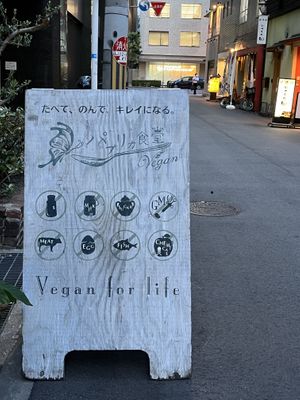 たべて、のんで、キレイになる。
パプリカ食堂
Vegan
MILK GMO
MEAT EGG FISH
Vegan for life